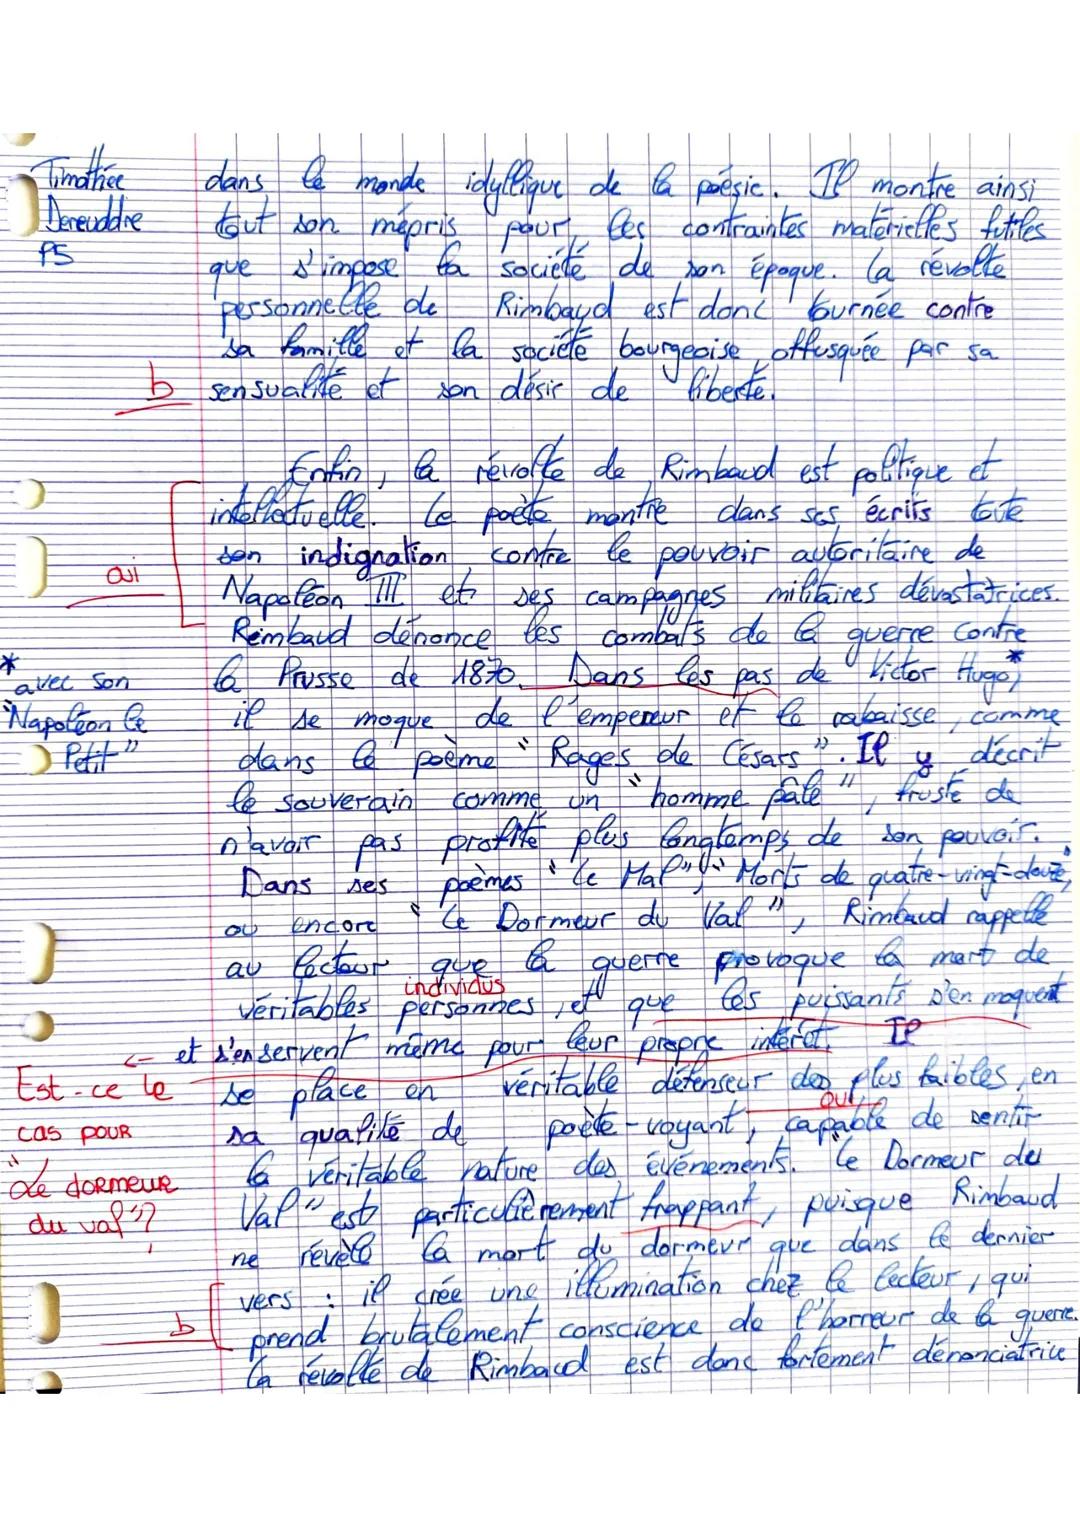 Timothée
Dereuddre
P5
dans le monde idyllique de la poésie. Il montre ainsi
tout son mépris pour les contraintes matérielles futiles
que s'impose la société de son époque. La révolte
personnelle de Rimbaud est donc tournée contre
sa famille et la société bourgeoise, offusquée par sa
b sensualité et son désir de liberté.
Enfin, la révolte de Rimbaud est politique et
intellectuelle. Le poète montre dans ses écrits toute
son indignation contre le pouvoir autoritaire de
oui
Napoléon III et ses campagnes militaires dévastatrices.
Rimbaud dénonce les combats de la guerre contre
la Prusse de 1870. Dans les pas de Victor Hugo*,
* avec son
"Napoléon le
Petit"
il se moque de l'empereur et le rabaisse, comme
dans le poème "Rages de Césars". Il y décrit
le souverain comme un "homme pâle", frustré de
n'avoir pas profité plus longtemps de son pouvoir.
Dans ses poèmes "Le Mal", "Morts de quatre-vingt-douze",
ou encore "Le Dormeur du Val", Rimbaud rappelle
au lecteur que la guerre provoque la mort de
individus
véritables personnes, et que les puissants s'en moquent
← et s'en servent même pour leur propre intérêt. Il
Est-ce le
cas pour
"Le dormeur
du val"?
se place en véritable défenseur des plus faibles, en
oui
sa qualité de poète-voyant, capable de sentir
la véritable nature des événements. "Le Dormeur du
Val" est particulièrement frappant, puisque Rimbaud
ne révèle la mort du dormeur que dans le dernier
vers : il crée une illumination chez le lecteur, qui
b prend brutalement conscience de l'horreur de la guerre.
La révolte de Rimbaud est donc fortement dénonciatrice